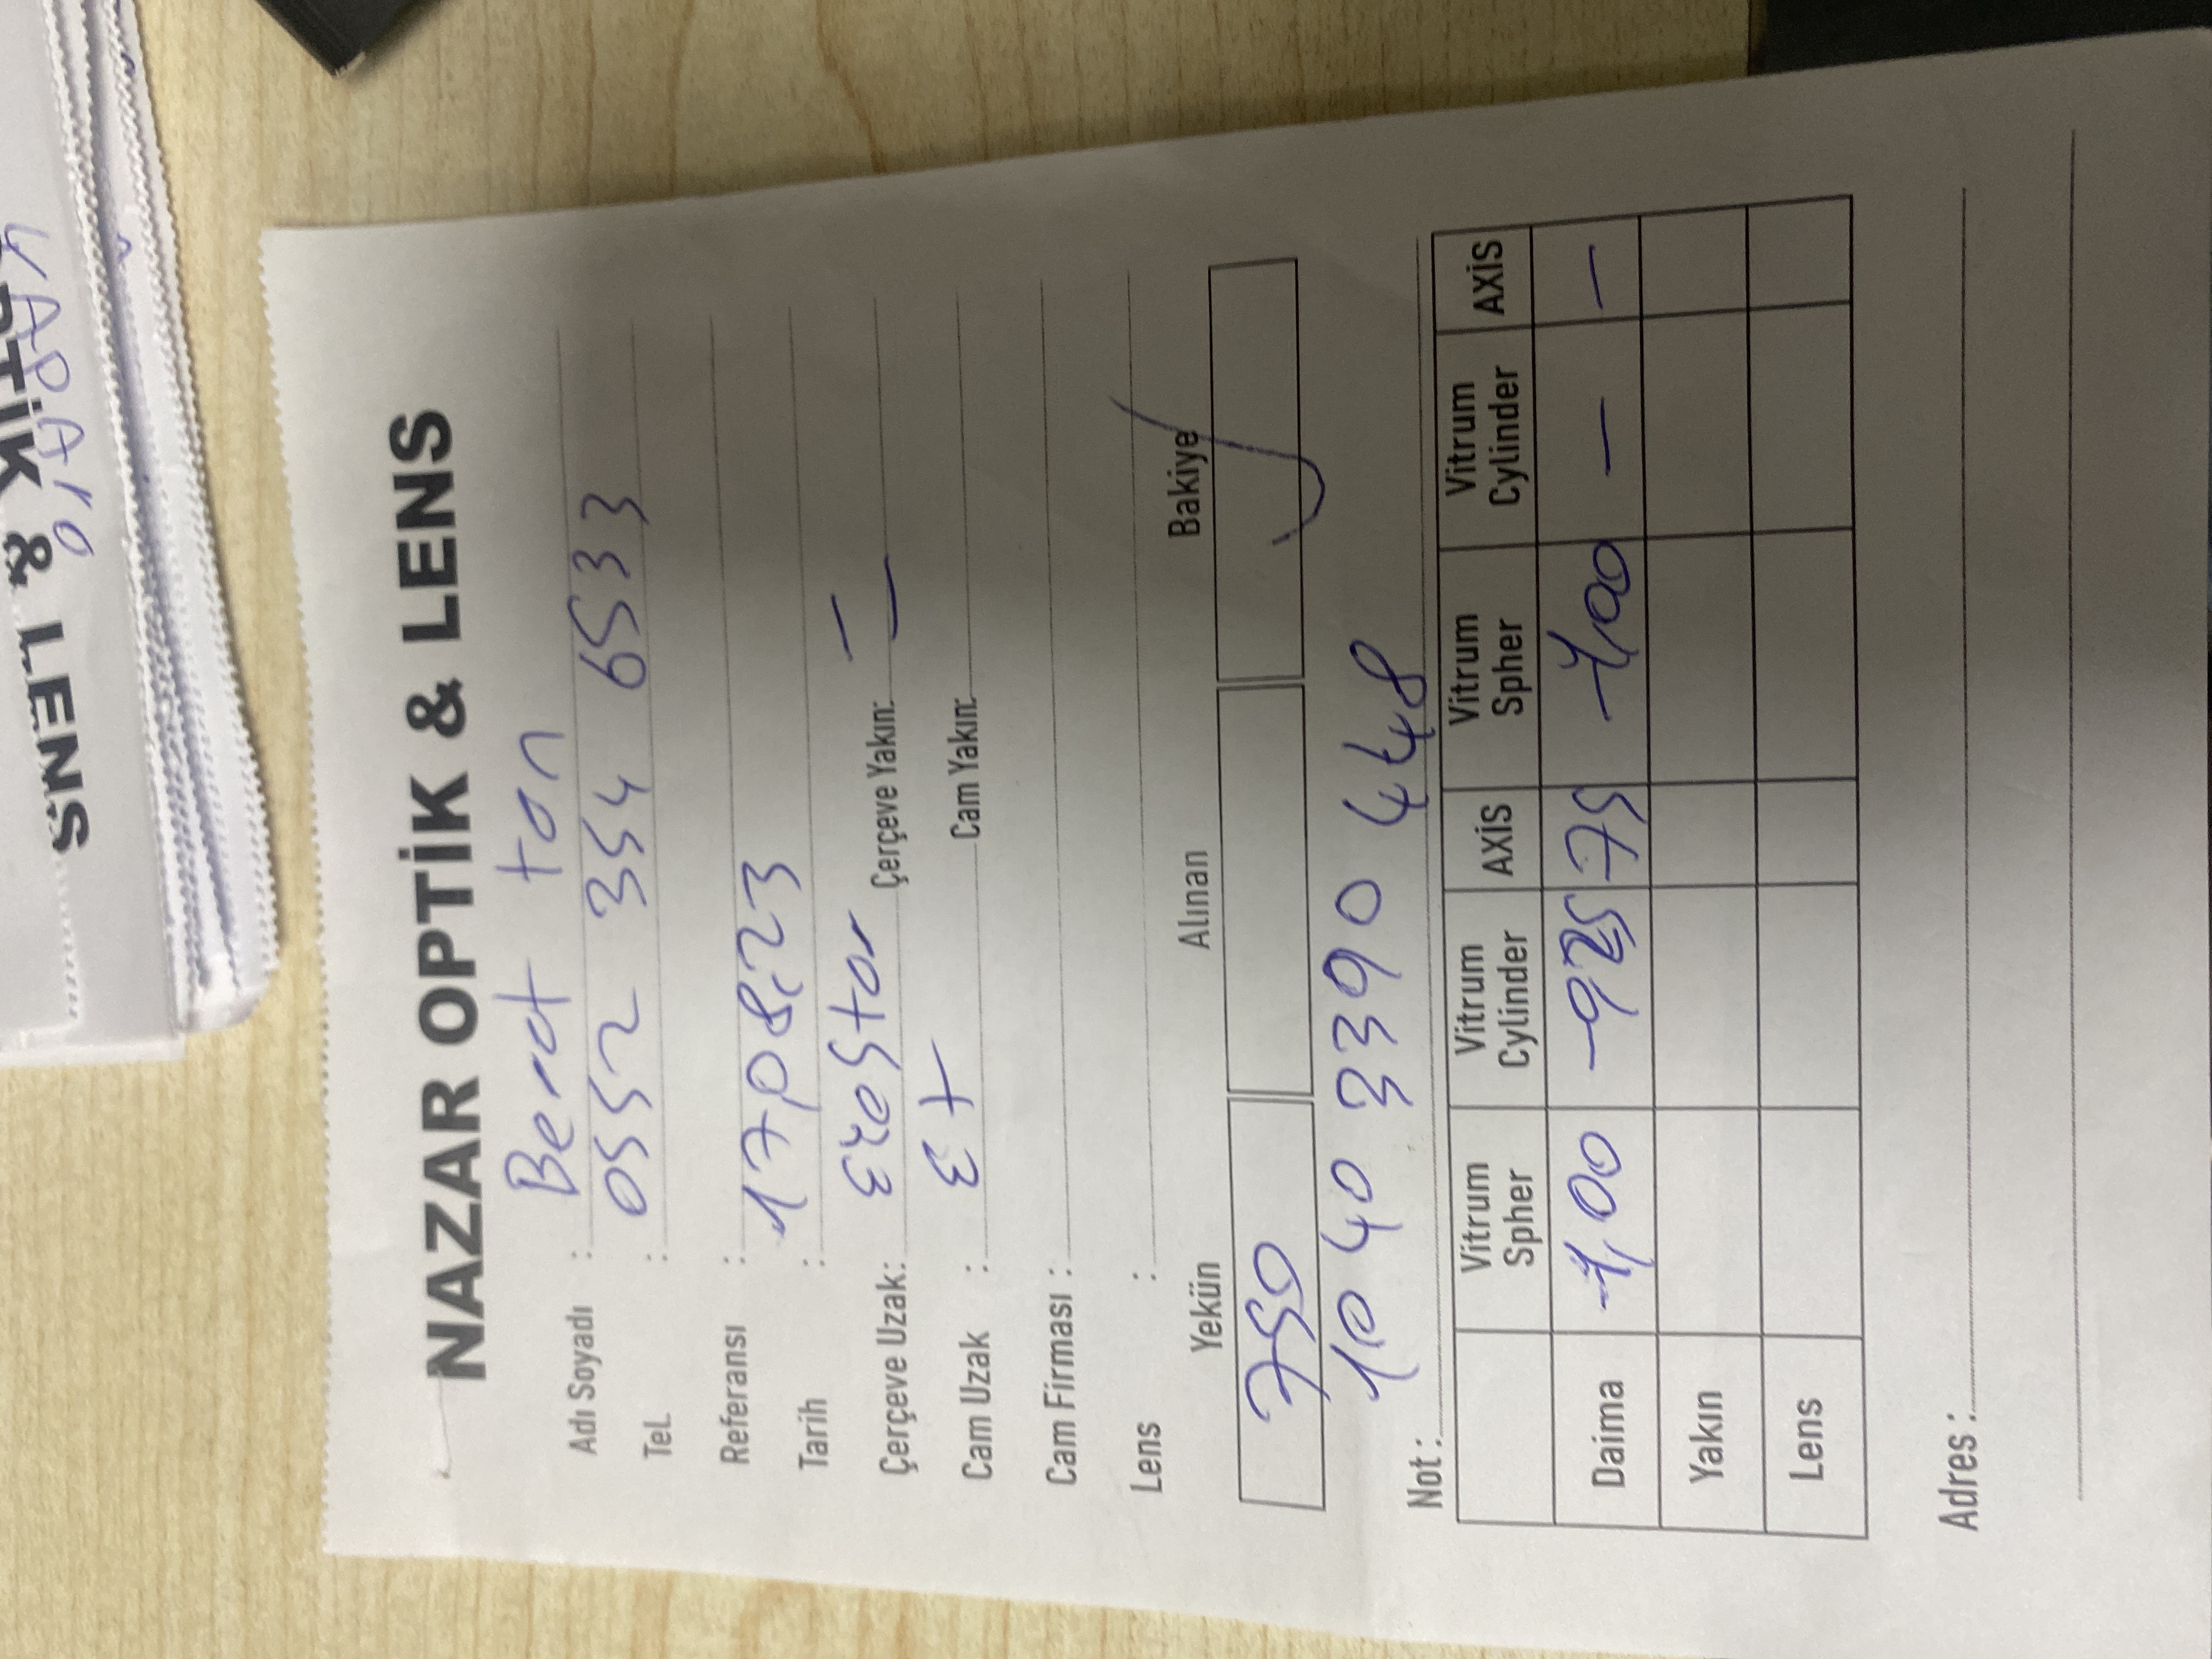 OPTİK & LENS
NAZAR OPTİK & LENS
Adı Soyadı : Berat tan
Tel. : 0552 354 6533
Referansı :
Tarih : 17,08,23
Çerçeve Uzak: Çerçeve Yakın: —
Cam Uzak : Et Cam Yakın: —
Cam Firması :
Lens :
Yekün Alınan Bakiye
750 ✓
10 40 3390 448
Not :
Vitrum Spher Vitrum Cylinder AXİS Vitrum Spher Vitrum Cylinder AXİS
Daima -1,00 -0,25 75 -1,00 — —
Yakın
Lens
Adres :